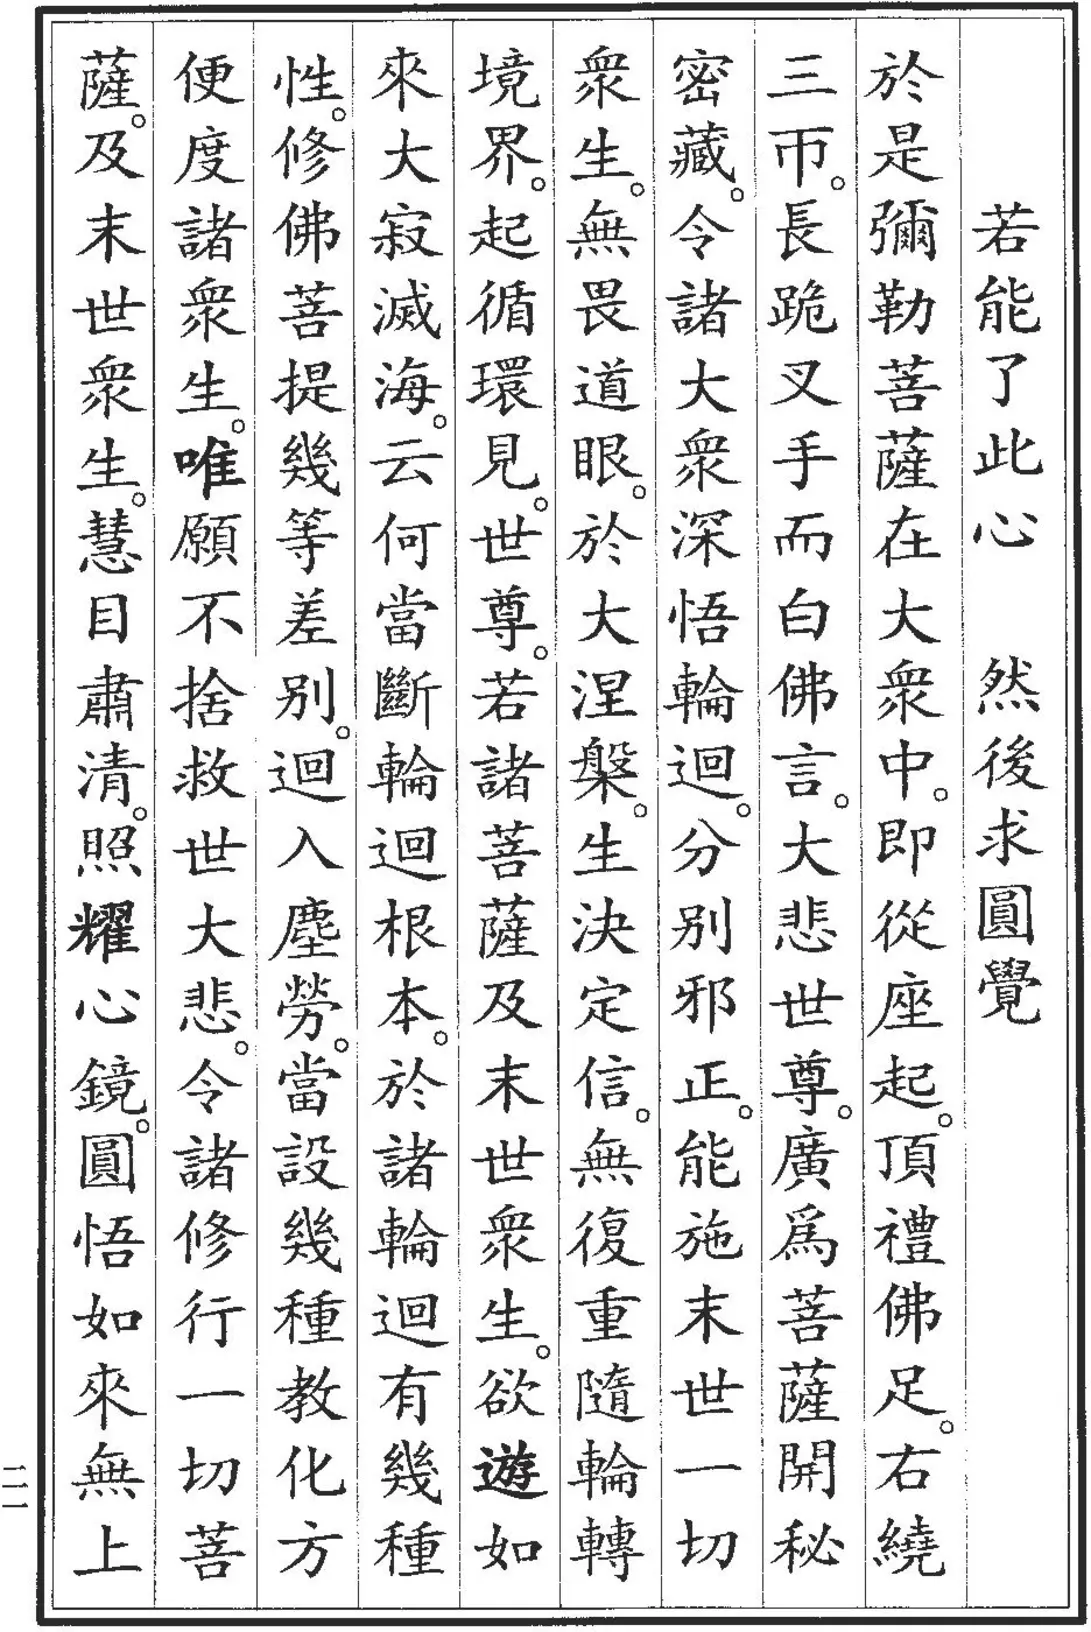 若能了此心　然後求圓覺
於是彌勒菩薩在大衆中。即從座起。頂禮佛足。右繞
三帀。長跪叉手而白佛言。大悲世尊。廣爲菩薩開秘
密藏。令諸大衆深悟輪迴。分別邪正。能施末世一切
衆生。無畏道眼。於大涅槃。生決定信。無復重隨輪轉
境界。起循環見。世尊。若諸菩薩及末世衆生。欲遊如
來大寂滅海。云何當斷輪迴根本。於諸輪迴有幾種
性。修佛菩提幾等差別。迴入塵勞。當設幾種教化方
便度諸衆生。唯願不捨救世大悲。令諸修行一切菩
薩。及末世衆生。慧目肅清。照耀心鏡。圓悟如來無上
二一